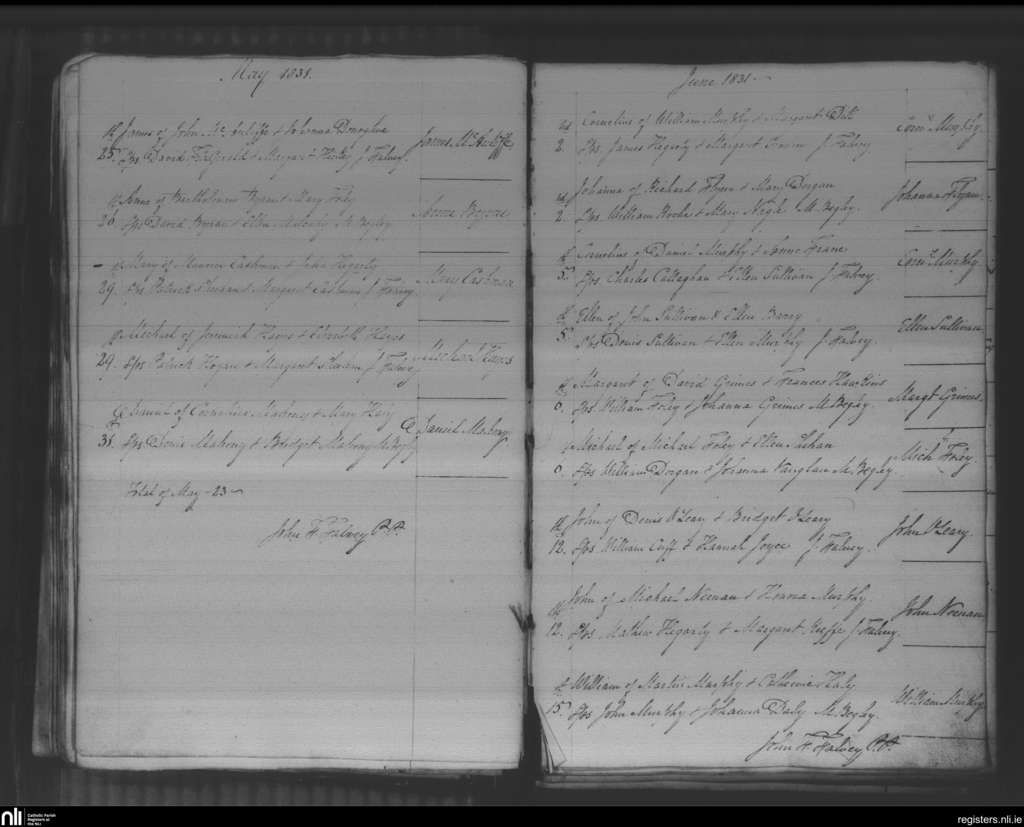 May 1831.
James of John McAuliffe & Johanna Donoghue James McAuliffe
25. Sps David Fitzgerald & Margaret Hickey J Falvey.
Anne of Bartholomew Byrane & Mary Foley Anne Byrane
26. Sps David Byrane & Ellen Mulcahy M. Begley
Mary of Maurice Cashman & Julia Hegerty Mary Cashman
29. Sps Patrick Sheehan & Margaret Cashman J Falvey.
Michael of Jeremiah Hayes & Hayes Michael Hayes
29. Sps Patrick Hogan & Margaret J Falvey
Daniel of Cornelius Mahony & Mary Daniel Mahony
31. Sps Denis Mahony & Bridget Mahony M Begley
Total of May - 23 -
John F Falvey P.P.
June 1831 -
Cornelius of William Murphy & Margaret Corns Murphy.
2. Sps. James Hegerty & Margaret J Falvey
Johanna of Richard Flynn & Mary Dorgan Johanna Flynn.
2. Sps William Roche & Mary Nagle M. Begley.
Cornelius of Daniel Murphy & Anne Corns Murphy
5. Sps Charles Callaghan & Ellen Sullivan J Falvey.
Ellen of John Sullivan & Ellen Barry Ellen Sullivan
5. Sps Denis Sullivan & Ellen Murphy J Falvey.
Margaret of David Grimes & Frances Hawkins Margt Grimes
Sps William Foley & Johanna Grimes M. Begley.
Michael of Michael Foley & Ellen Michl Foley.
Sps William Dorgan & Johanna Vaughan M. Begley.
John of Denis O'Leary & Bridget O'Leary John O'Leary.
12. Sps William Cuff & Hannah Joyce J Falvey.
John of Michael Noonan & Honora Murphy. John Noonan
12. Sps Mathew Hegarty & Margaret Keeffe J Falvey.
William of Martin Murphy & Catherine Daly William Murphy
15. Sps John Murphy & Johanna Daly M. Begley.
John F Falvey P.P.
nli Catholic Parish
Registers at
the NLI
registers.nli.ie